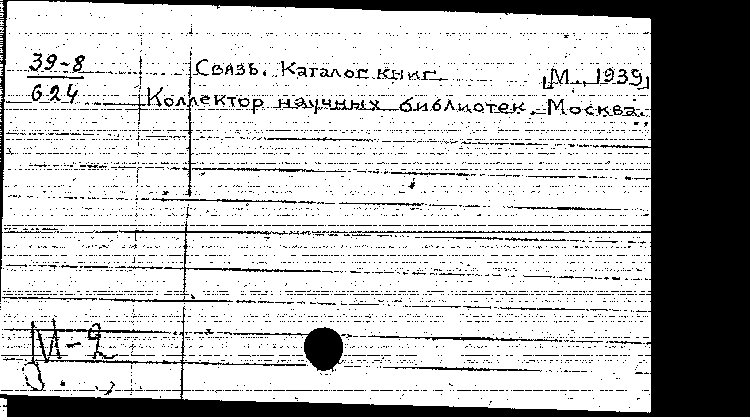 39-8
624
Связь. Каталог книг. [М., 1939]
Коллектор научных библиотек. Москва.
М-2